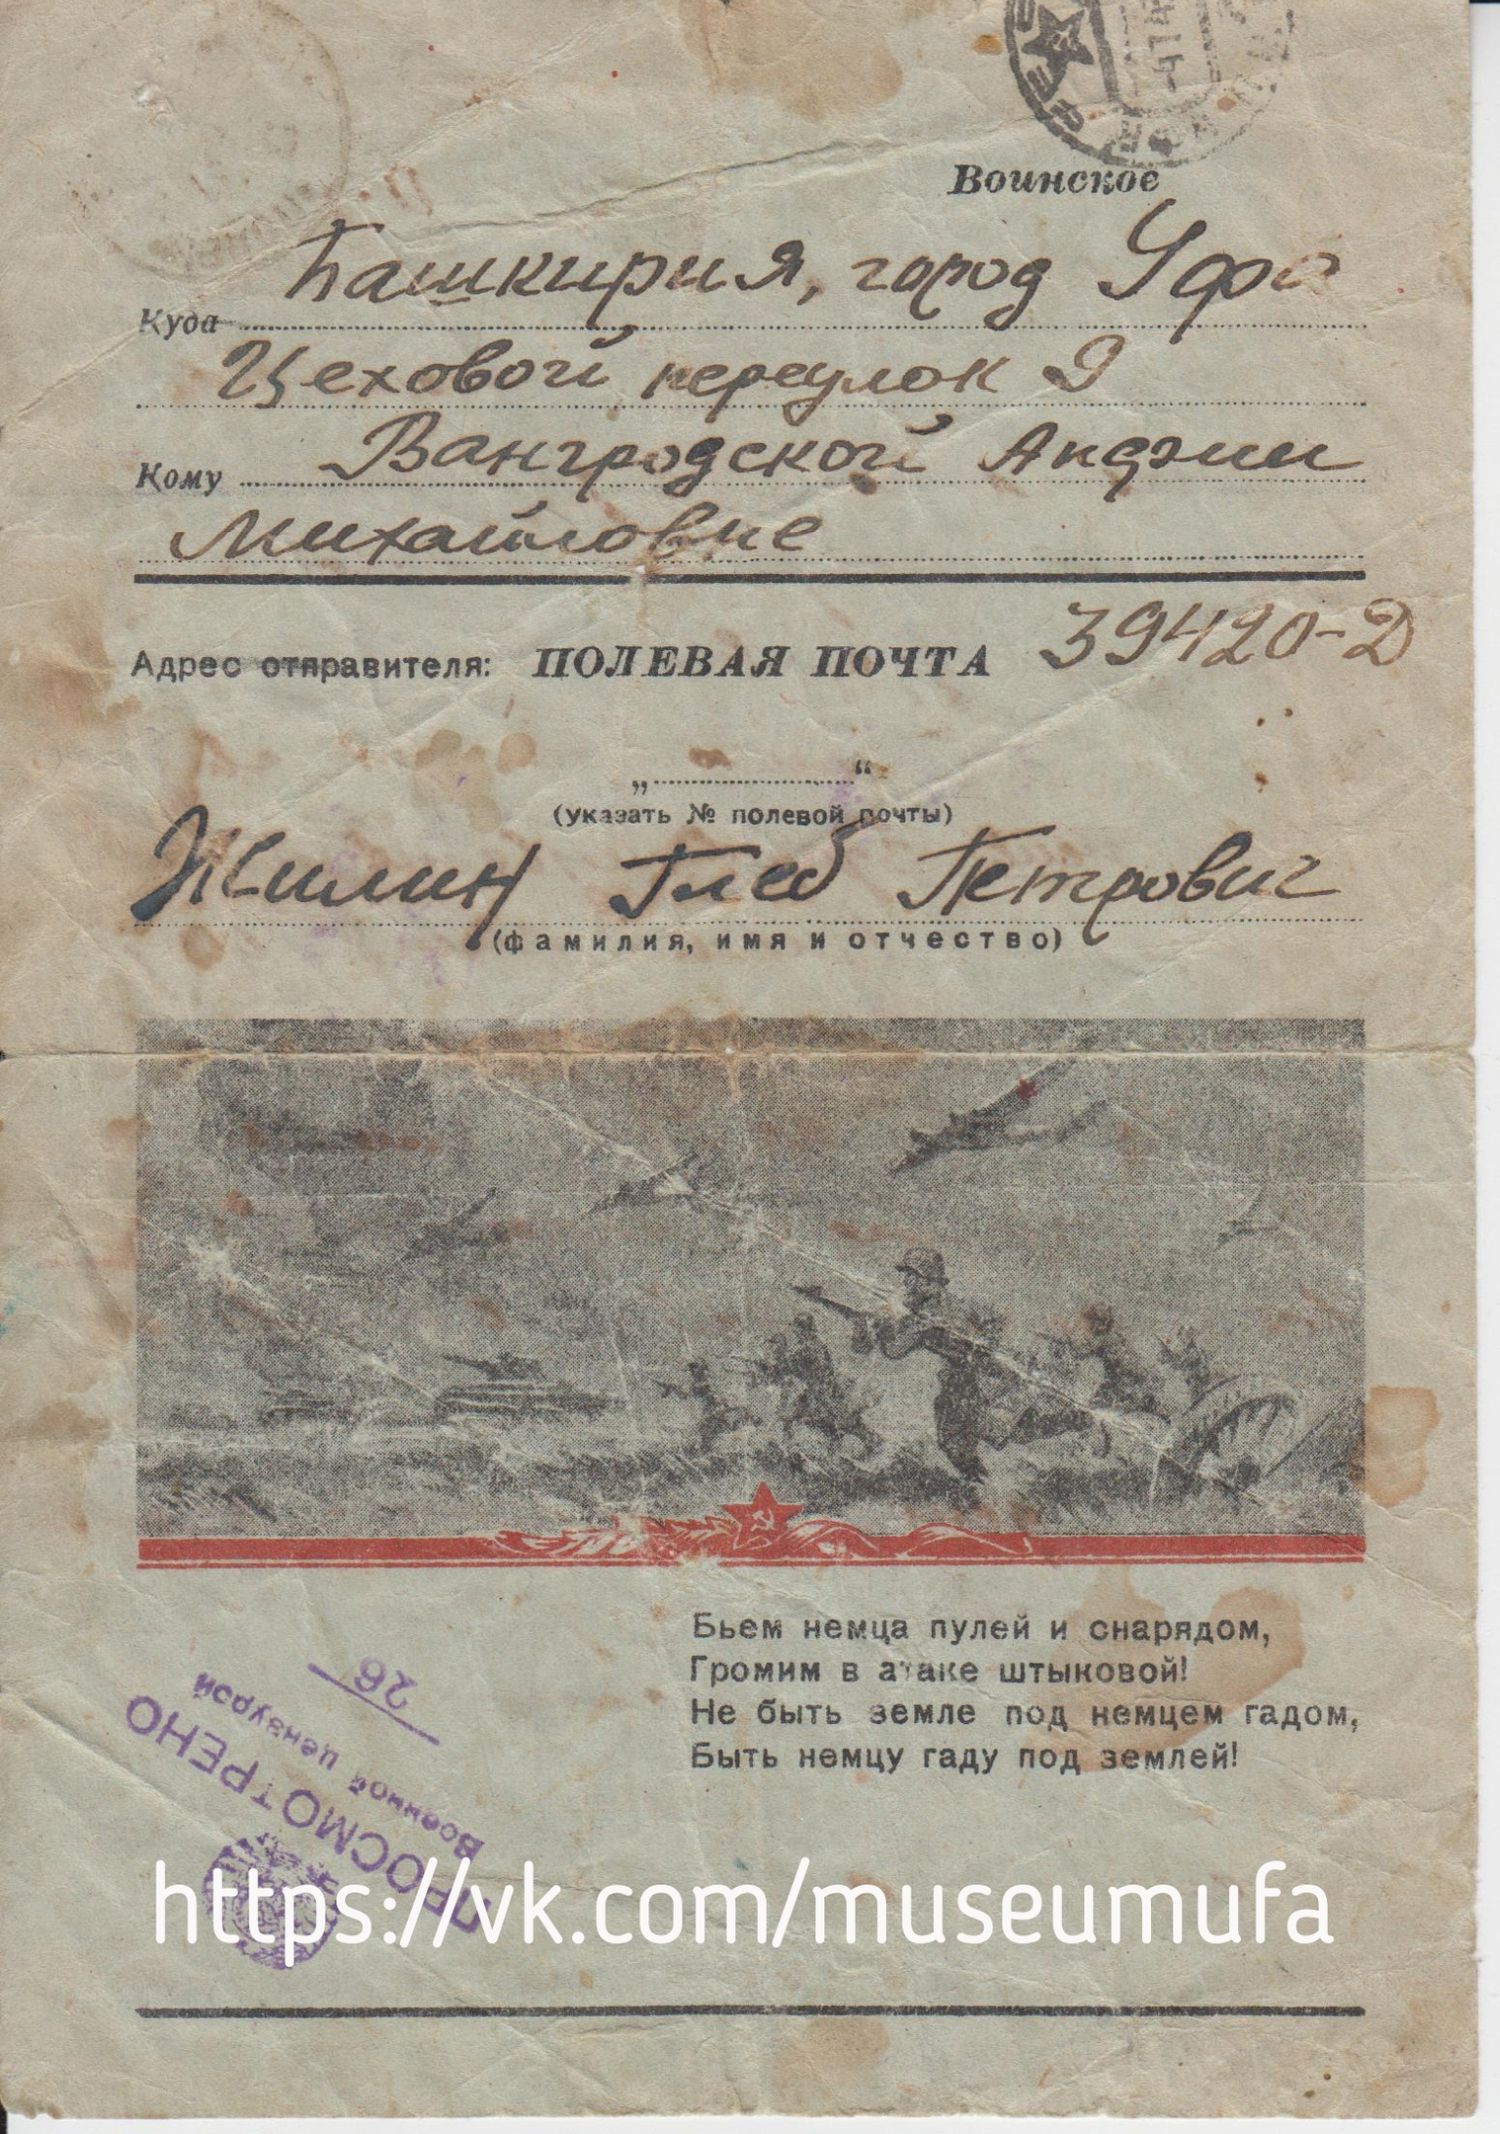 Воинское
Куда Башкирия, город Уфа
Цеховой переулок 9
Кому Вангродской
Михайловне
Адрес отправителя: ПОЛЕВАЯ ПОЧТА 39420-Д
„ “
(указать № полевой почты)
Жилин Глеб Петрович
(фамилия, имя и отчество)
Бьем немца пулей и снарядом,
Громим в атаке штыковой!
Не быть земле под немцем гадом,
Быть немцу гаду под землей!
ПРОСМОТРЕНО
Военной цензурой
26
https://vk.com/museumufa